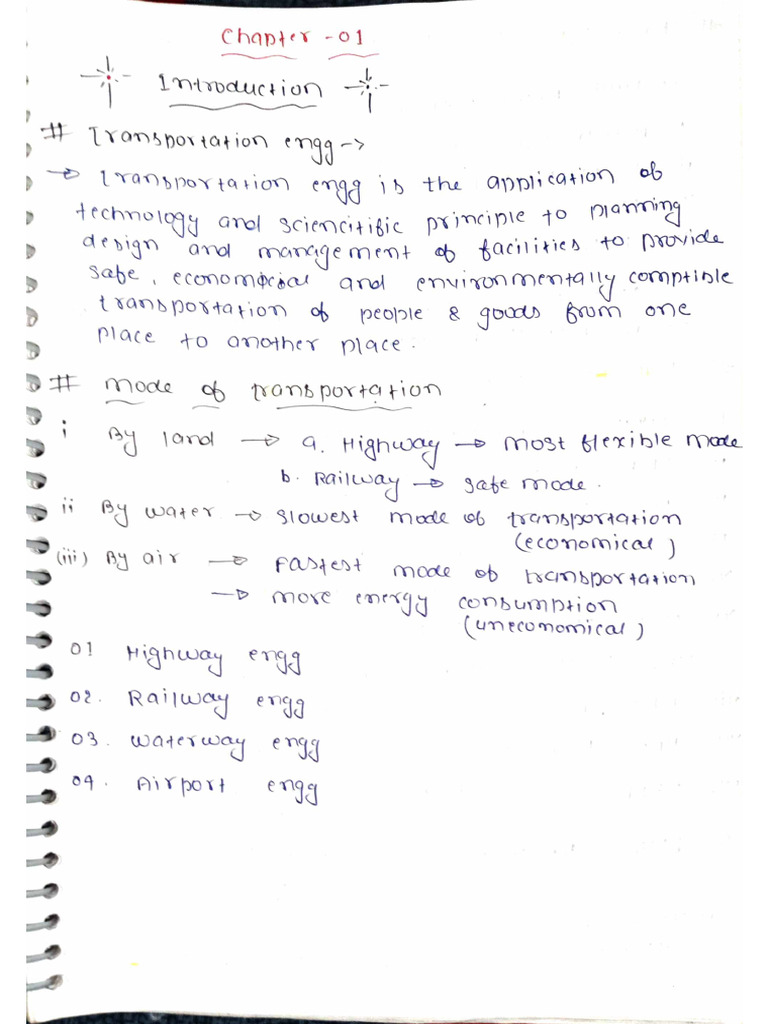 Chapter - 01
Introduction
# Transportation engg ->
→ Transportation engg is the application of
technology and sciencitific principle to planning
design and management of facilities to provide
safe, economical and environmentally comptible
transportation of people & goods from one
place to another place.
# Mode of transportation
i By land → a. Highway → most flexible mode
b. Railway → safe mode.
ii By water → slowest mode of transportation
(economical)
(iii) By air → Fastest mode of transportation
→ more energy consumption
(uneconomical)
01 Highway engg
02. Railway engg
03. Waterway engg
04. Airport engg